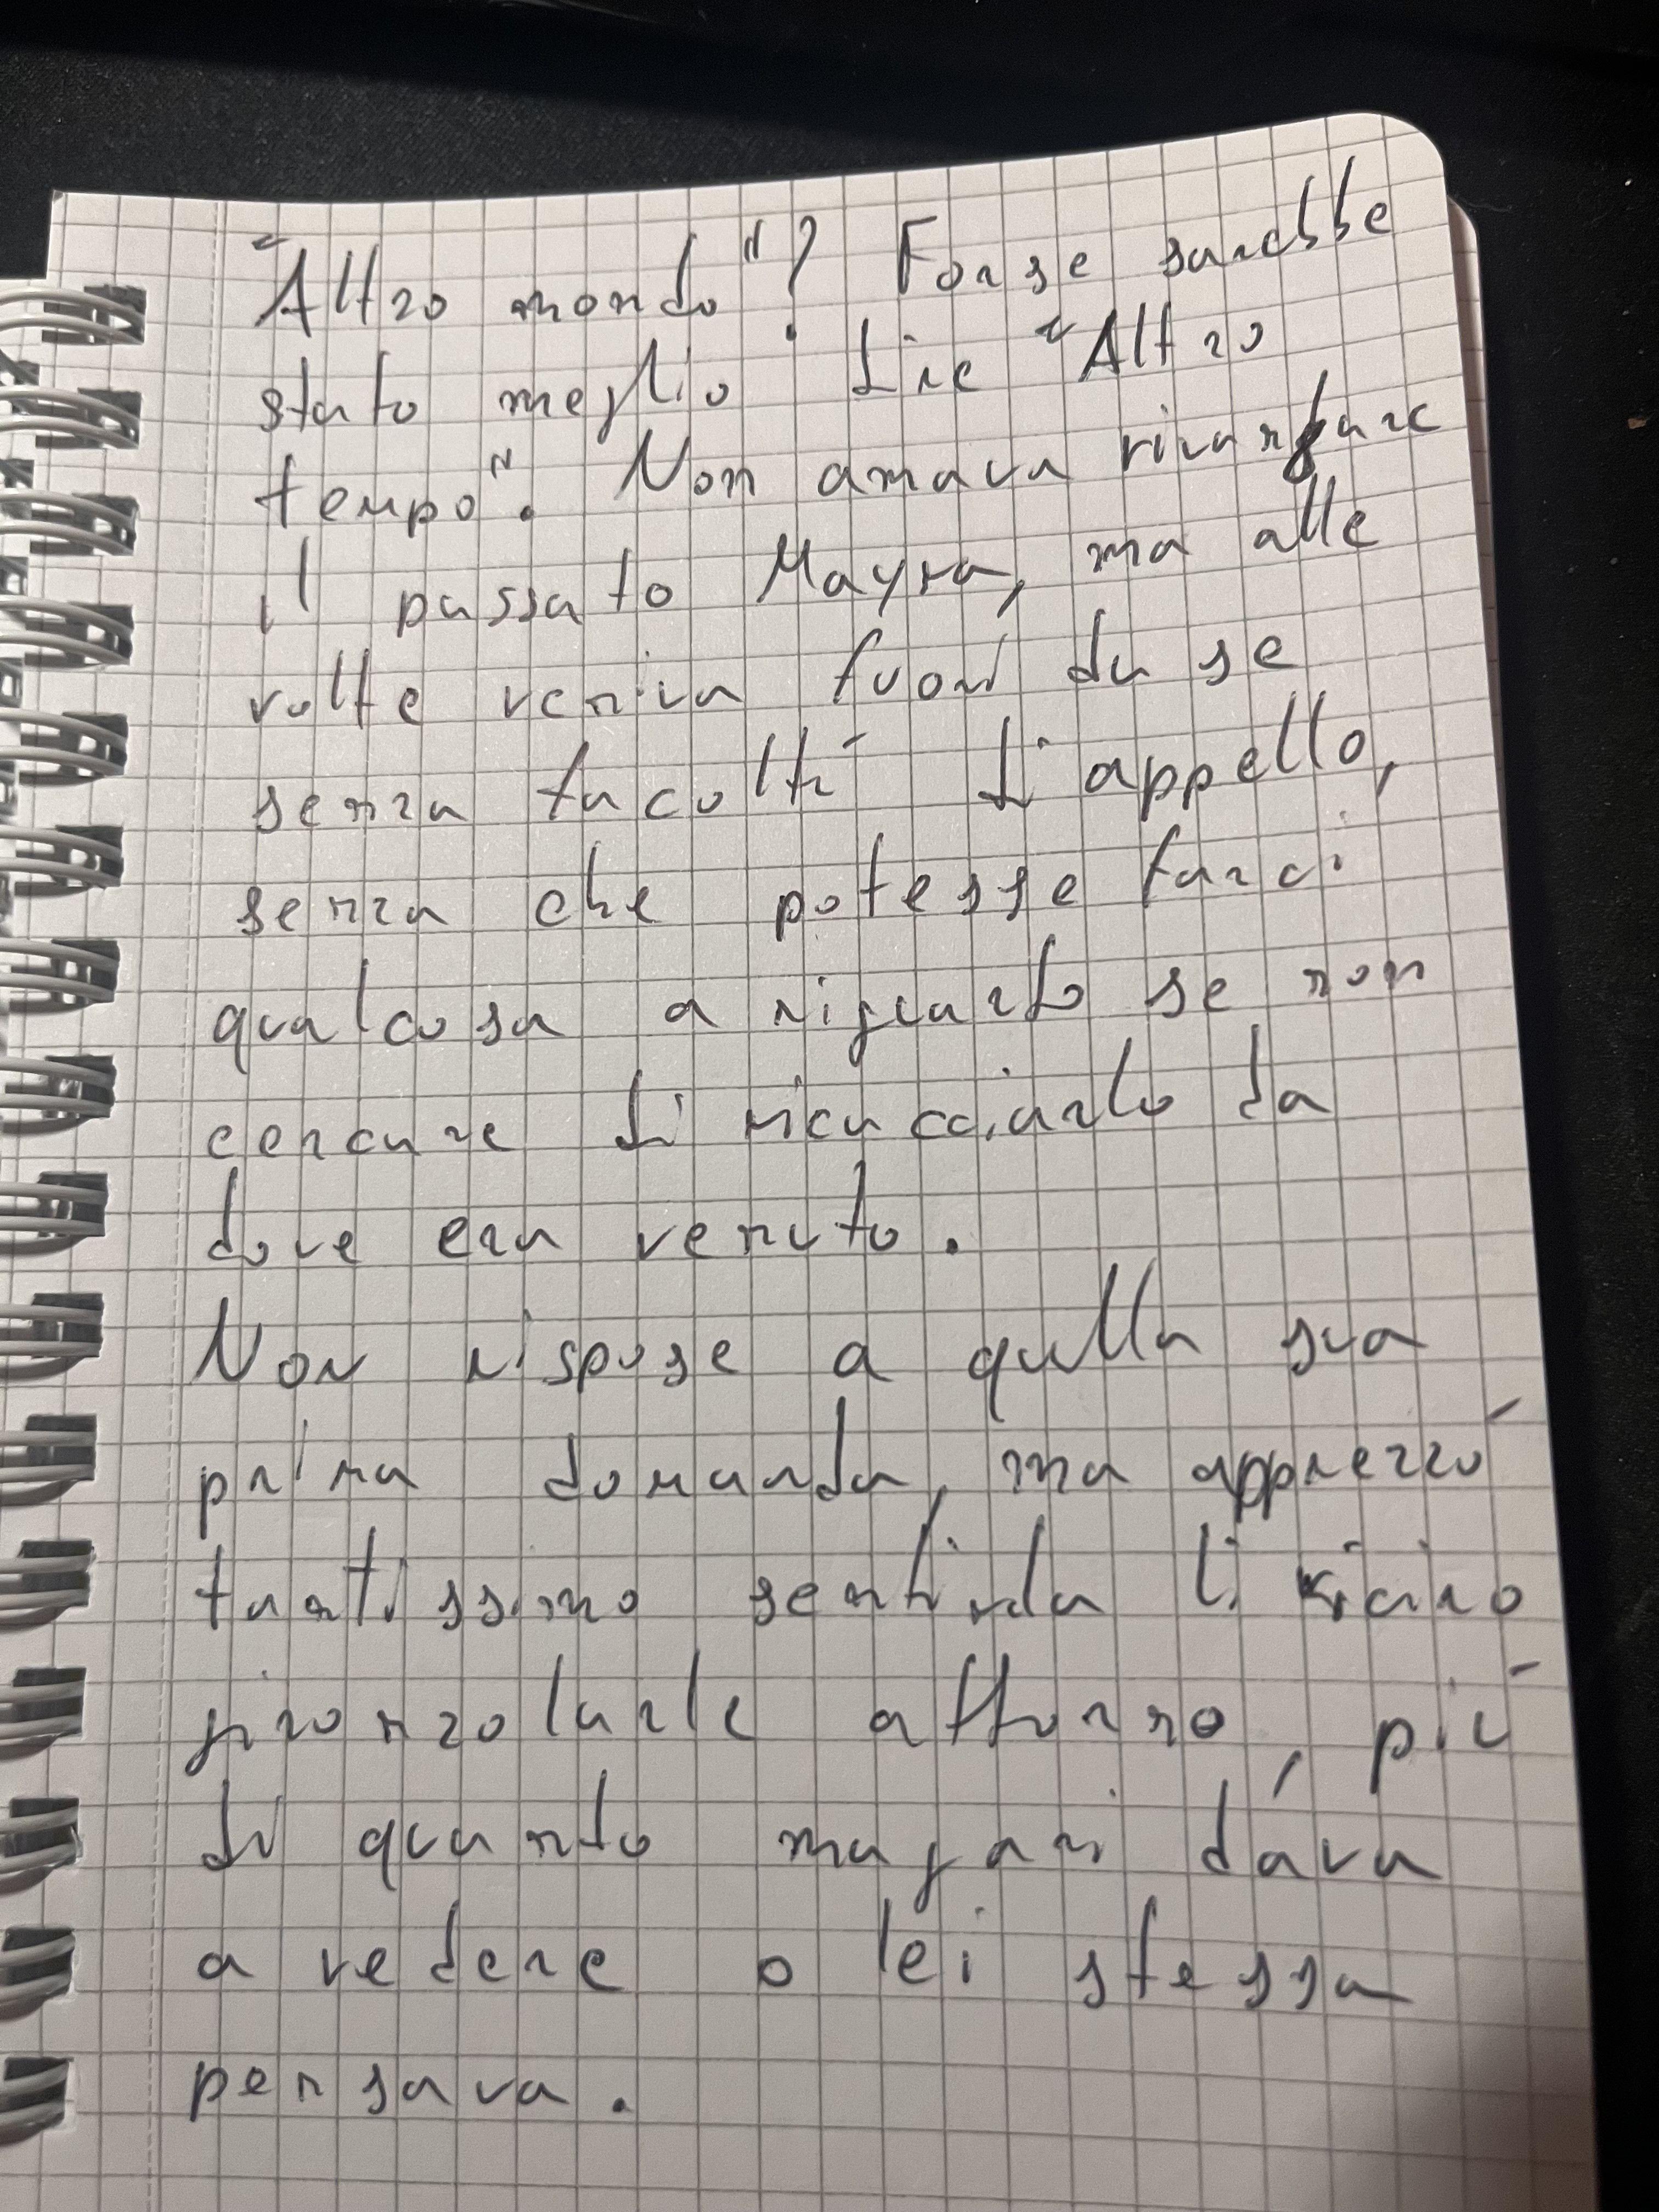 "Altro mondo"? Forse sarebbe
stato meglio dire "Altro
tempo". Non amava rivangare
il passato Mayra, ma alle
volte veniva fuori da se
senza facoltà d'appello,
senza che potesse farci
qualcosa a riguardo se non
cercare di ricacciarlo da
dove era venuto.
Non rispose a qulla sua
prima domanda, ma apprezzò
tantissimo sentirla lì vicino
gironzolarle attorno, più
di quanto magari dava
a vedere o lei stessa
pensava.